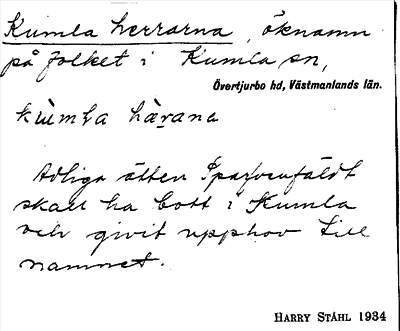 Kumla herrarna, öknamn
på folket i Kumla sn,
Övertjurbo hd, Västmanlands län.
kùmla hàrana
Adliga ätten Sparfvenfäldt
skall ha bott i Kumla
och givit upphov till
namnet.
HARRY STÅHL 1934